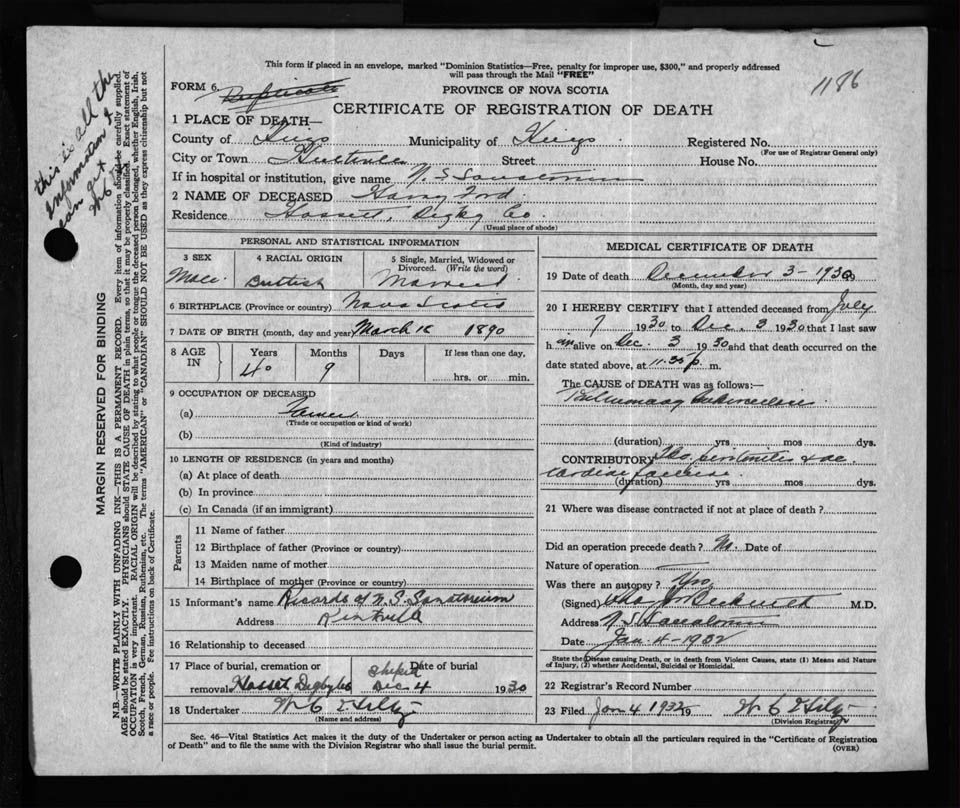 This form if placed in an envelope, marked "Dominion Statistics—Free, penalty for improper use, $300," and properly addressed
will pass through the Mail "FREE"
1186
FORM 6. Duplicate
PROVINCE OF NOVA SCOTIA
CERTIFICATE OF REGISTRATION OF DEATH
1 PLACE OF DEATH—
County of Kings Municipality of Kings Registered No.
(For use of Registrar General only)
City or Town Street House No.
If in hospital or institution, give name N. S. Sanatorium
2 NAME OF DECEASED Harry Ford
Residence Hassett, Digby Co.
(Usual place of abode)
PERSONAL AND STATISTICAL INFORMATION
3 SEX 4 RACIAL ORIGIN 5 Single, Married, Widowed or
Divorced. (Write the word)
Male British Married
6 BIRTHPLACE (Province or country) Nova Scotia
7 DATE OF BIRTH (month, day and year) March 18 1890
8 AGE IN Years Months Days If less than one day,
40 9 hrs. or min.
9 OCCUPATION OF DECEASED
(a) Farmer
(Trade or occupation or kind of work)
(b)
(Kind of industry)
10 LENGTH OF RESIDENCE (in years and months)
(a) At place of death
(b) In province
(c) In Canada (if an immigrant)
Parents
11 Name of father
12 Birthplace of father (Province or country)
13 Maiden name of mother
14 Birthplace of mother (Province or country)
15 Informant's name Records of N. S. Sanatorium
Address Kentville
16 Relationship to deceased
17 Place of burial, cremation or Date of burial
removal Hasset Digby Co Shipped Dec 4 1930
18 Undertaker W C
(Name and address)
MEDICAL CERTIFICATE OF DEATH
19 Date of death December 3 - 1930
(Month, day and year)
20 I HEREBY CERTIFY that I attended deceased from July
7 1930 to Dec. 3 1930 that I last saw
h im alive on Dec. 3 1930 and that death occurred on
date stated above, at 11.35 p m.
The CAUSE of DEATH was as follows:—
Pulmonary tuberculosis
(duration) yrs mos dys.
CONTRIBUTORY Tbc. peritonitis & ac.
cardiac failure.
(duration) yrs. mos dys.
21 Where was disease contracted if not at place of death?
Did an operation precede death? No. Date of
Nature of operation
Was there an autopsy? Yes
(Signed) M.D.
Address N S Sanatorium
Date Jan - 4 - 1932
State the Disease causing Death, or in death from Violent Causes, state (1) Means and Nature
of Injury, (2) whether Accidental, Suicidal or Homicidal.
22 Registrar's Record Number
23 Filed Jan 4 1932 19 W C
(Division Registrar)
Sec. 46—Vital Statistics Act makes it the duty of the Undertaker or person acting as Undertaker to obtain all the particulars required in the "Certificate of Registration
of Death" and to file the same with the Division Registrar who shall issue the burial permit.
(OVER)
this is all the
information I
can get
MARGIN RESERVED FOR BINDING
N.B.—WRITE PLAINLY WITH UNFADING INK—THIS IS A PERMANENT RECORD. Every item of information should be carefully supplied.
AGE should be stated EXACTLY. PHYSICIANS should STATE CAUSE OF DEATH in plain terms, so that it may be properly classified. Exact statement of
OCCUPATION is very important. RACIAL ORIGIN will be described by stating to what people or tongue the deceased person belonged, whether English, Irish,
Scotch, French, German, Russian, Ruthenian, etc. The terms "AMERICAN" or "CANADIAN" SHOULD NOT BE USED as they express citizenship but not
a race or people. Fee instructions on back of Certificate.